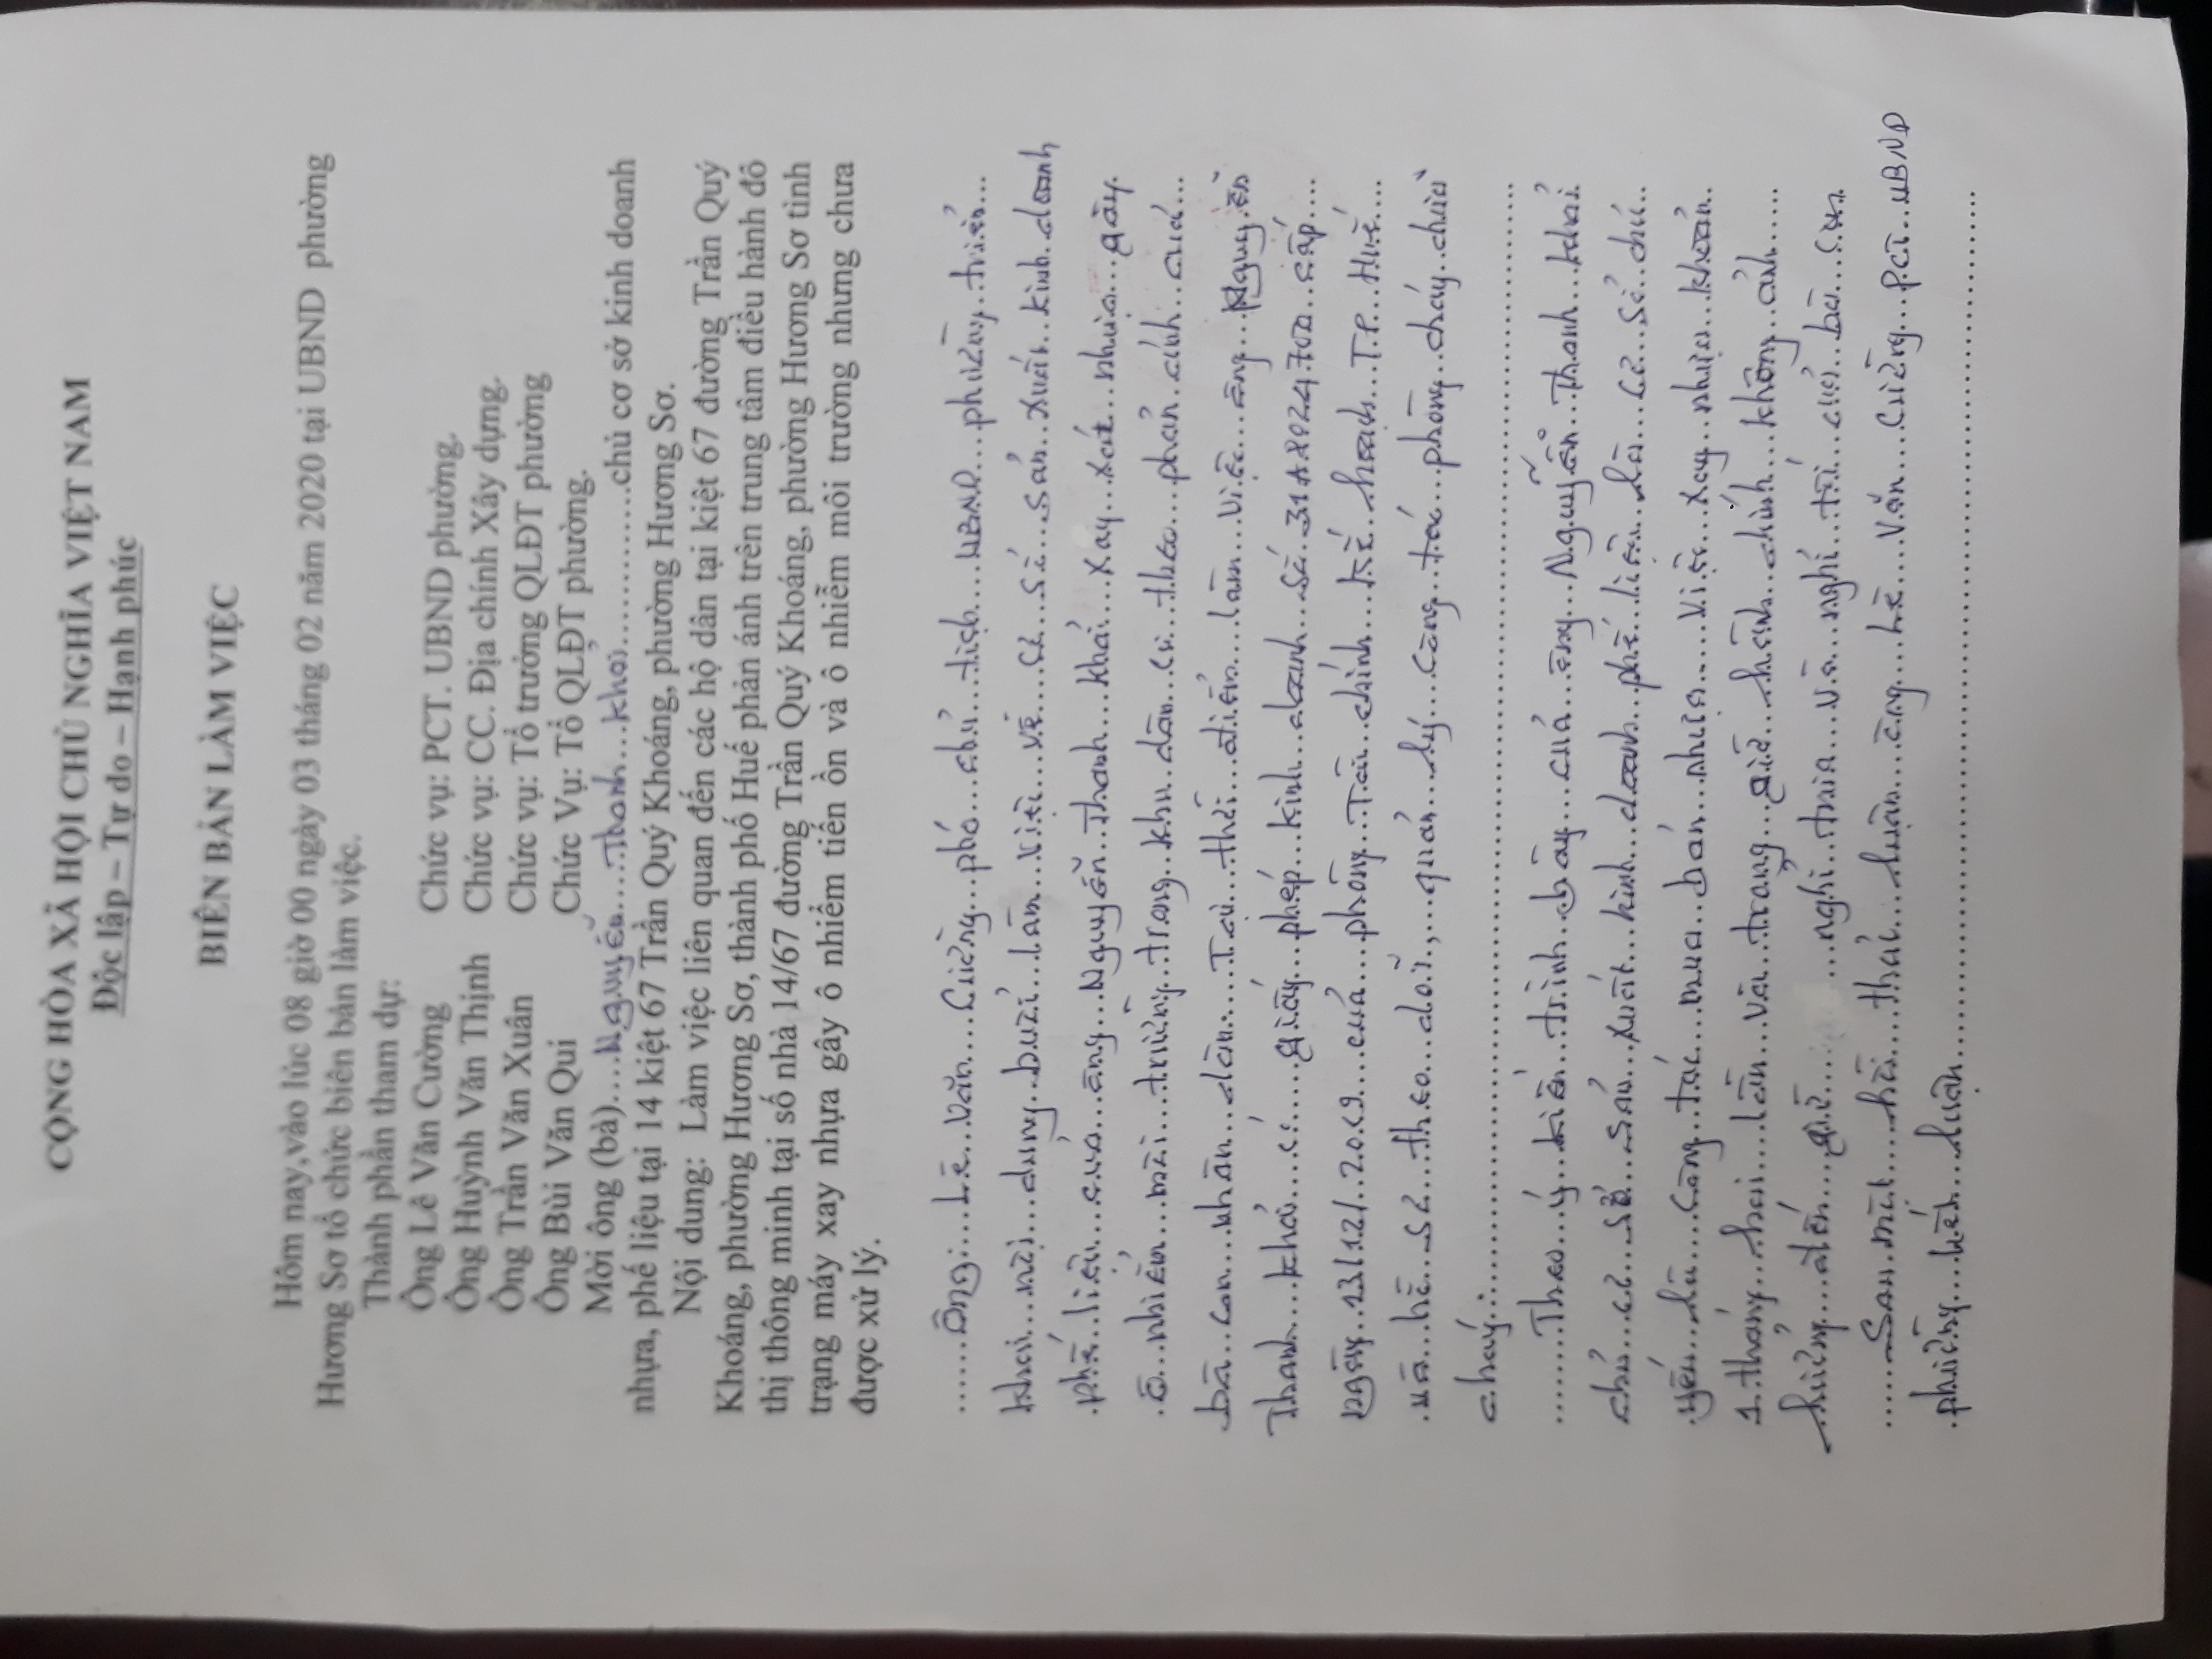 CỘNG HÒA XÃ HỘI CHỦ NGHĨA VIỆT NAM
Độc lập – Tự do – Hạnh phúc
BIÊN BẢN LÀM VIỆC
Hôm nay,vào lúc 08 giờ 00 ngày 03 tháng 02 năm 2020 tại UBND phường
Hương Sơ tổ chức biên bản làm việc.
Thành phần tham dự:
Ông Lê Văn Cường Chức vụ: PCT. UBND phường.
Ông Huỳnh Văn Thịnh Chức vụ: CC. Địa chính Xây dựng.
Ông Trần Văn Xuân Chức vụ: Tổ trưởng QLĐT phường
Ông Bùi Văn Qui Chức Vụ: Tổ QLĐT phường.
Mời ông (bà)....Nguyễn...Thanh...Khải............chủ cơ sở kinh doanh
nhựa, phế liệu tại 14 kiệt 67 Trần Quý Khoáng, phường Hương Sơ.
Nội dung: Làm việc liên quan đến các hộ dân tại kiệt 67 đường Trần Quý
Khoáng, phường Hương Sơ, thành phố Huế phản ánh trên trung tâm điều hành đô
thị thông minh tại số nhà 14/67 đường Trần Quý Khoáng, phường Hương Sơ tình
trạng máy xay nhựa gây ô nhiễm tiến ồn và ô nhiễm môi trường nhưng chưa
được xử lý.
Ông: Lê Văn Cường phó chủ tịch UBND phường triển
khai nội dung buổi làm việc về cơ sở sản xuất kinh doanh
phế liệu của ông Nguyễn Thanh Khải xay xát nhựa gây
ô nhiễm môi trường trong khu dân cư theo phản ánh của
bà con nhân dân. Tại thời điểm làm việc ông Nguyễn
Thanh Khải có giấy phép kinh doanh số 31A8024700 cấp
ngày 13/12/2019 của phòng Tài chính kế hoạch T.P Huế
và hồ sơ theo dõi, quản lý công tác phòng cháy chữa
cháy.
Theo ý kiến trình bày của ông Nguyễn Thanh Khải
chủ cơ sở sản xuất kinh doanh phế liệu là cơ sở chủ
yếu là công tác mua bán nhựa việc xay nhựa khoản
1 tháng hai lần và trong giờ hành chính không ảnh
hưởng đến giờ nghỉ trưa và nghỉ tối của bà con.
Sau một hồi thảo luận ông Lê Văn Cường PCT UBND
phường kết luận